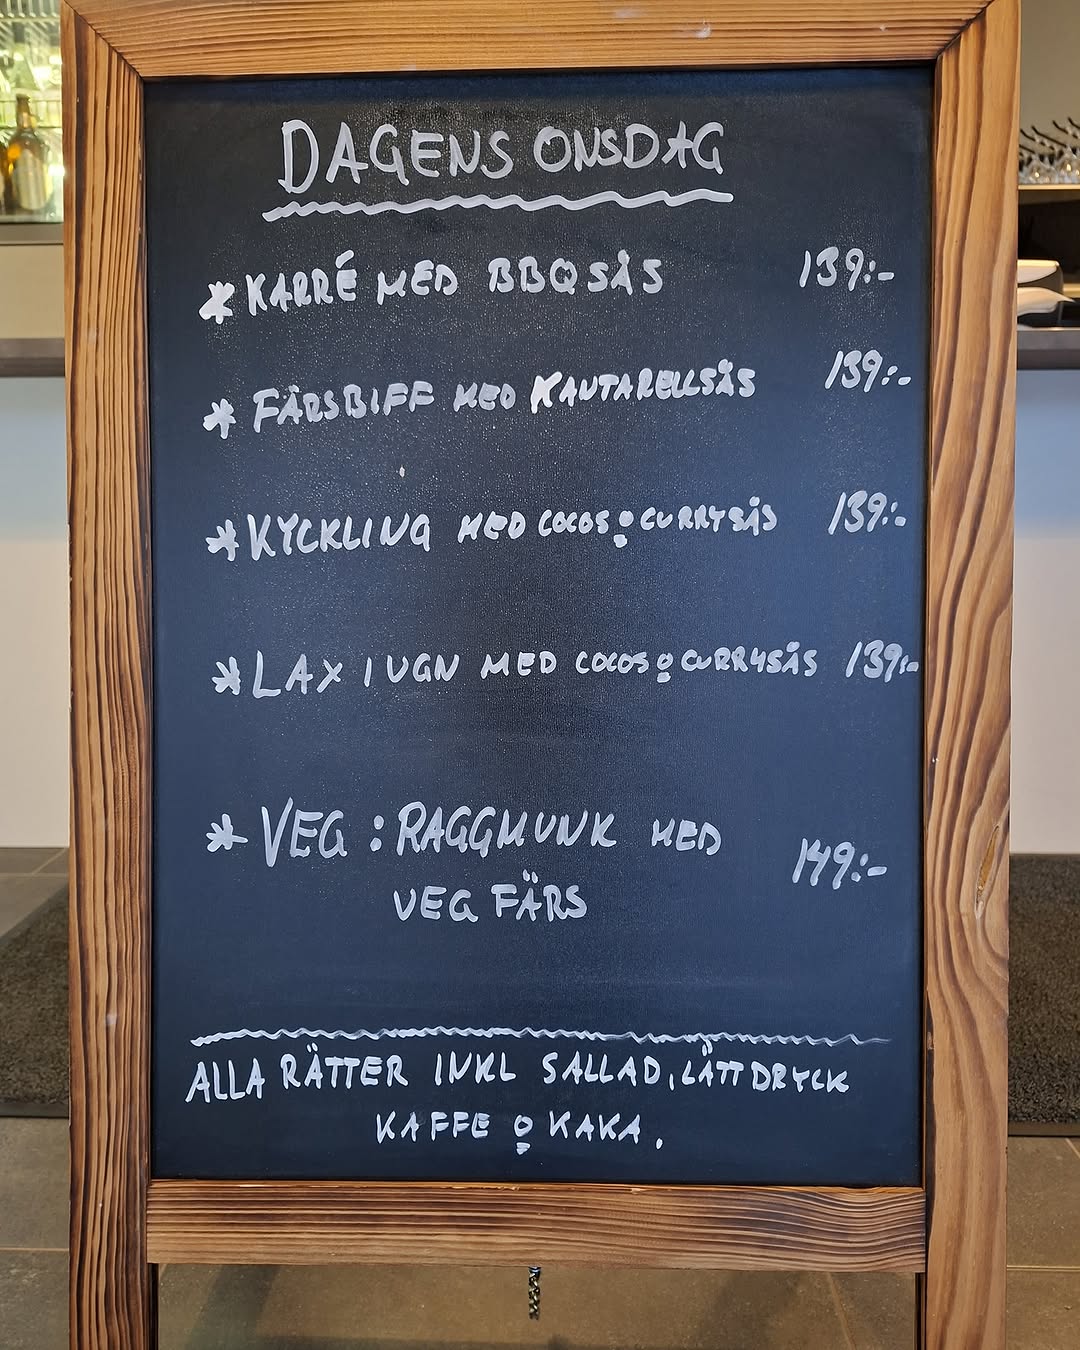 DAGENS ONSDAG
* KARRÉ MED BBQSÅS 139:-
* FÄRSBIFF MED KANTARELLSÅS 139:-
* KYCKLING MED COCOS o CURRYSÅS 139:-
* LAX I UGN MED COCOS o CURRYSÅS 139:-
* VEG : RAGGMUNK MED 149:-
VEG FÄRS
ALLA RÄTTER INKL SALLAD, LÄTTDRYCK
KAFFE o KAKA.